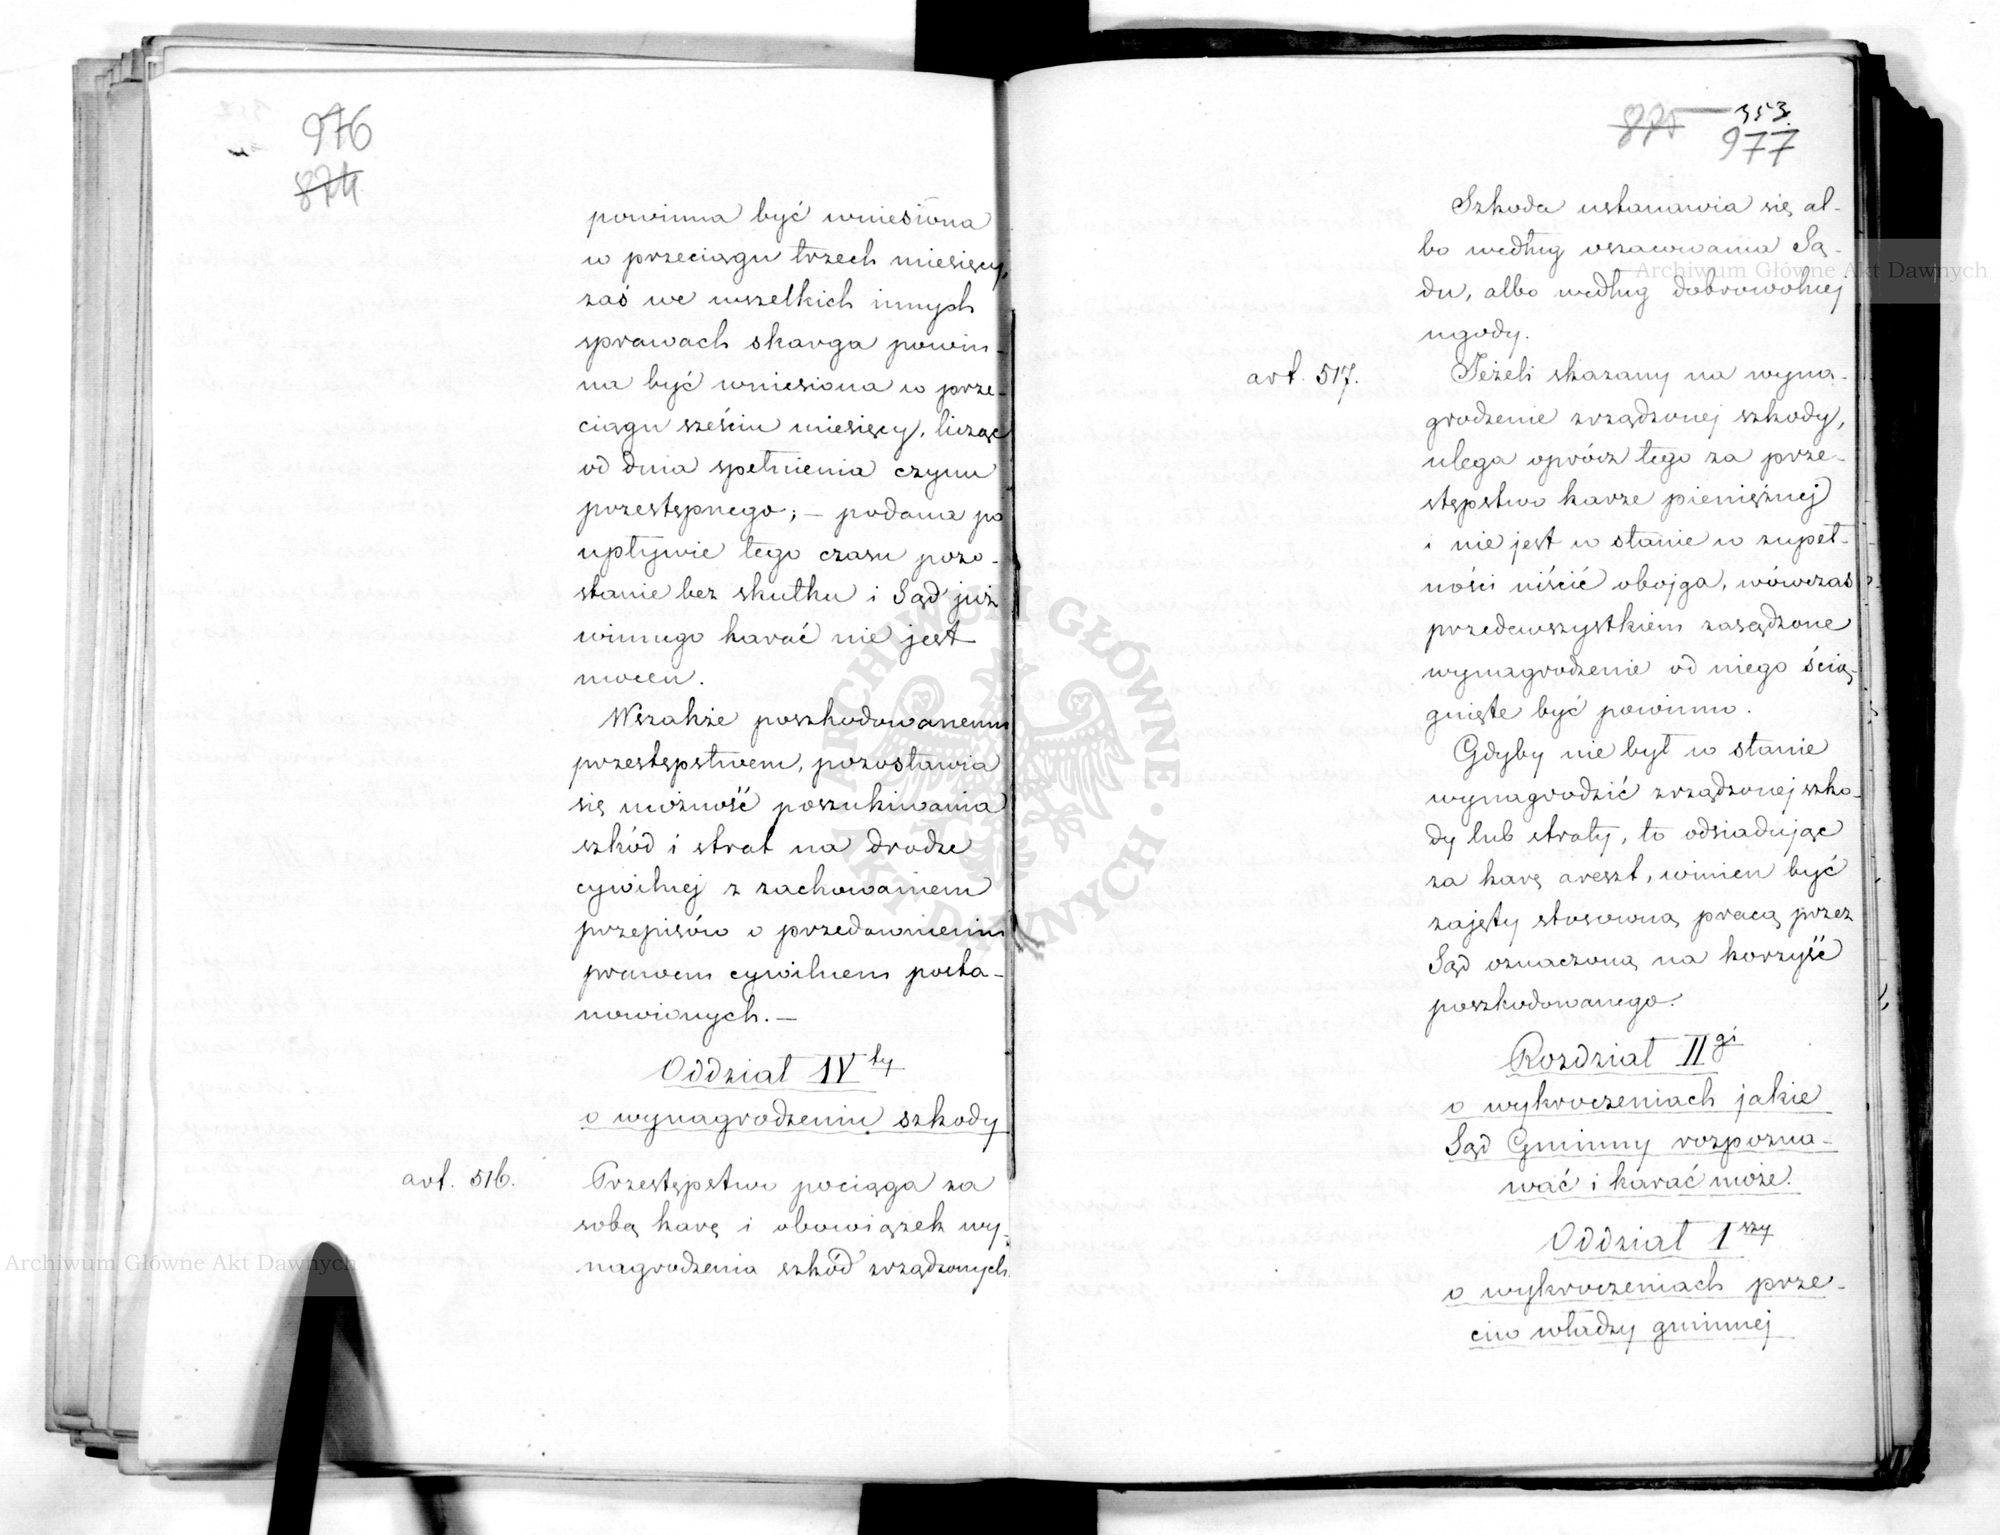 976
874
powinna być wniesiona
w przeciągu trzech miesięcy,
zaś we wszelkich innych
sprawach skarga powin-
na być wniesiona w prze-
ciągu sześciu miesięcy, licząc
od dnia spełnienia czynu
przestępnego; — podana po
upływie tego czasu pozo-
stanie bez skutku i Sąd już
winnego karać nie jest
mocen.
Wszakże poszkodowanemu
przestępstwem, pozostawia
się możność poszukiwania
szkód i strat na drodze
cywilnej z zachowaniem
przepisów o przedawnieniu
prawem cywilnem posta-
nowionych. —
Oddział IV ty
o wynagrodzeniu szkody
art. 516.
Przestępstwo pociąga za
sobą karę i obowiązek wy-
nagrodzenia szkód zrządzonych.
875 353.
977
Szkoda ustanawia się al-
bo według oszacowania Są-
du, albo według dobrowolnej
ugody.
art. 517.
Jeżeli skazany na wyna-
grodzenie zrządzonej szkody,
ulega oprócz tego za prze-
stępstwo karze pieniężnej
i nie jest w stanie w zupeł-
ności uiścić obojga, wówczas
przedewszystkiem zasądzone
wynagrodzenie od niego ścią-
gnięte być powinno.
Gdyby nie był w stanie
wynagrodzić zrządzonej szko-
dy lub straty, to odsiadując
za karę areszt, winien być
zajęty stosowną pracą przez
Sąd oznaczoną na korzyść
poszkodowanego.
Rozdział II gi
o wykroczeniach jakie
Sąd Gminny rozpozna-
wać i karać może.
Oddział 1 szy
o wykroczeniach prze-
ciw władzy gminnej
Archiwum Główne Akt Dawnych
Archiwum Główne Akt Dawnych
ARCHIWUM GŁÓWNE AKT DAWNYCH